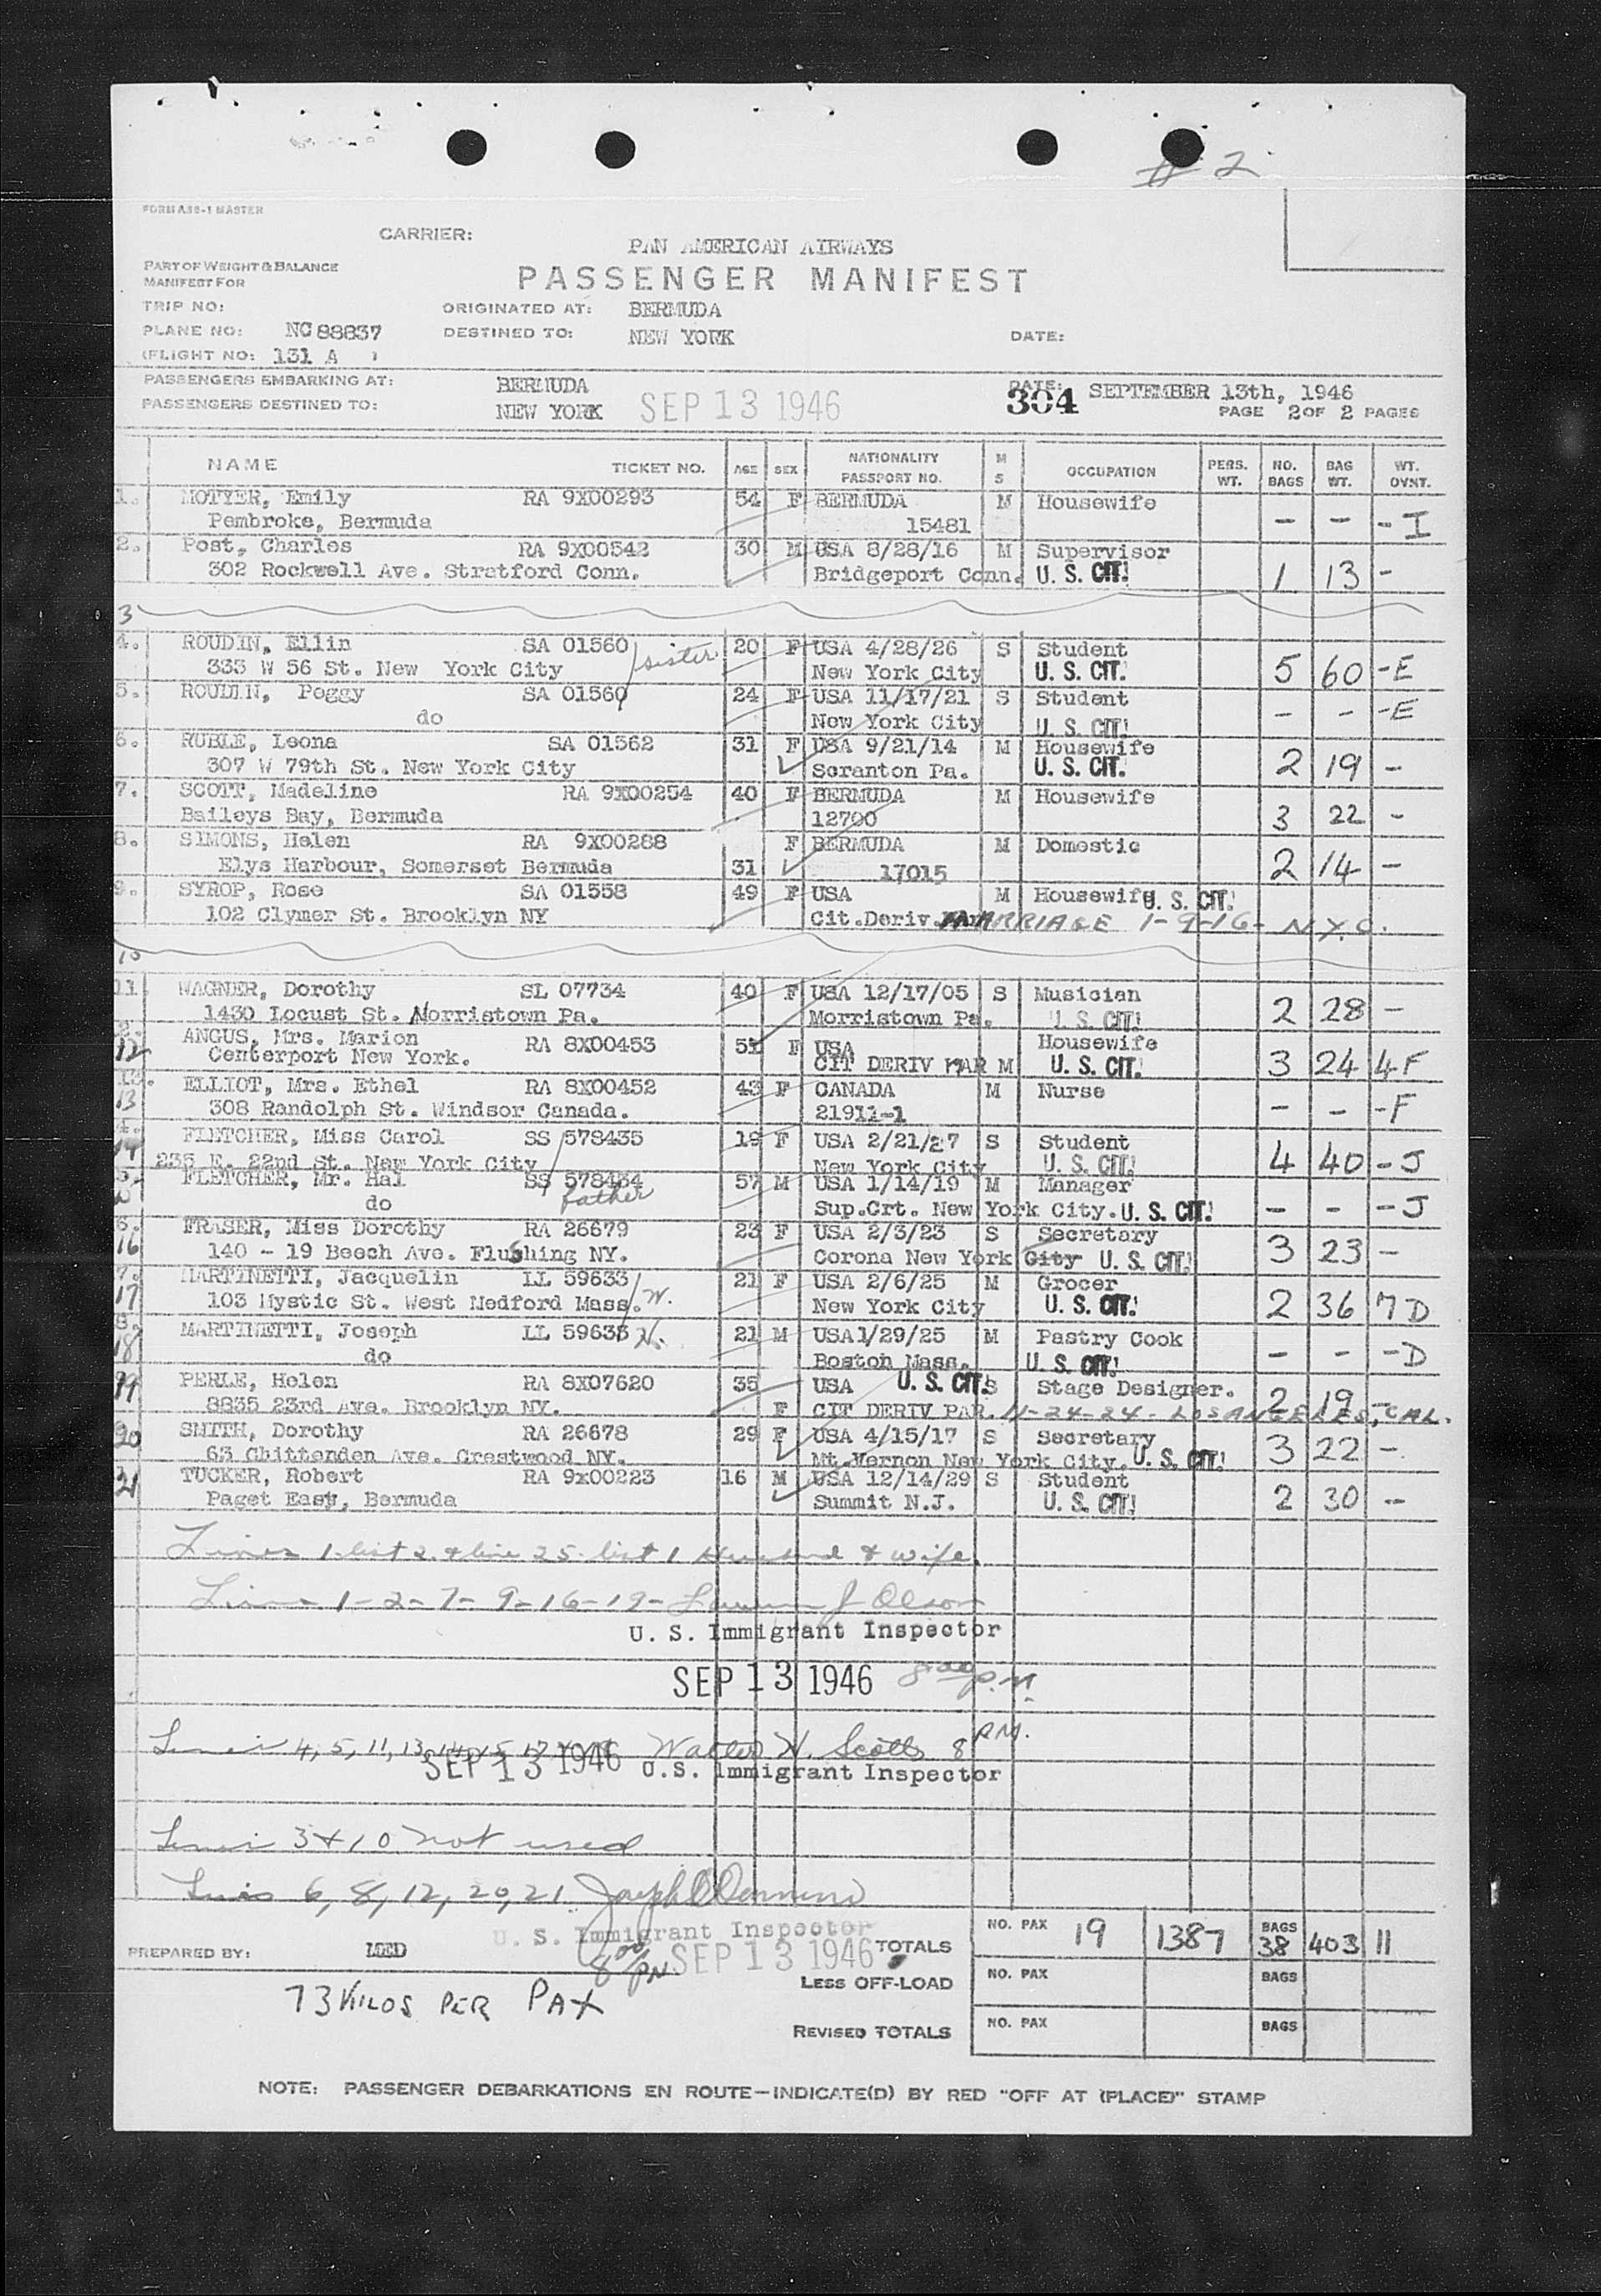 # 2
FORM A86-1 MASTER
CARRIER: PAN AMERICAN AIRWAYS
PART OF WEIGHT & BALANCE
MANIFEST FOR
PASSENGER MANIFEST
TRIP NO: ORIGINATED AT: BERMUDA
PLANE NO: NC 88837 DESTINED TO: NEW YORK DATE:
(FLIGHT NO: 131 A )
PASSENGERS EMBARKING AT: BERMUDA DATE: SEPTEMBER 13th, 1946
PASSENGERS DESTINED TO: NEW YORK SEP 13 1946 304 PAGE 2 OF 2 PAGES
NAME TICKET NO. AGE SEX NATIONALITY PASSPORT NO. M S OCCUPATION PERS. WT. NO. BAGS BAG WT. WT. OVNT.
1. MOTYER, Emily RA 9X00293 54 F BERMUDA M Housewife
Pembroke, Bermuda 15481 - - - I
2. Post, Charles RA 9X00542 30 M USA 8/28/16 M Supervisor
302 Rockwell Ave. Stratford Conn. Bridgeport Conn. U. S. CIT. 1 13 -
3
4. ROUDIN, Ellin SA 01560 sister 20 F USA 4/28/26 S Student
333 W 56 St. New York City New York City U. S. CIT. 5 60 - E
5. ROUDIN, Peggy SA 01560 24 F USA 11/17/21 S Student
do New York City U. S. CIT. - - - E
6. RUBLE, Leona SA 01562 31 F USA 9/21/14 M Housewife
307 W 79th St. New York City Scranton Pa. U. S. CIT. 2 19 -
7. SCOTT, Madeline RA 9X00254 40 F BERMUDA M Housewife
Baileys Bay, Bermuda 12700 3 22 -
8. SIMONS, Helen RA 9X00288 F BERMUDA M Domestic
Elys Harbour, Somerset Bermuda 31 17015 2 14 -
9. SYROP, Rose SA 01558 49 F USA M Housewife U. S. CIT.
102 Clymer St. Brooklyn NY Cit.Deriv. MARRIAGE 1-9-16- N.Y.C.
10
11 WAGNER, Dorothy SL 07734 40 F USA 12/17/05 S Musician
1430 Locust St. Norristown Pa. Morristown Pa. U. S. CIT. 2 28 -
12 ANGUS, Mrs. Marion RA 8X00453 51 F USA Housewife
Centerport New York. CIT DERIV MAR M U. S. CIT. 3 24 4 F
13 ELLIOT, Mrs. Ethel RA 8X00452 43 F CANADA M Nurse
308 Randolph St. Windsor Canada. 21911-1 - - - F
14 FLETCHER, Miss Carol SS 578435 19 F USA 2/21/27 S Student
235 E. 22nd St. New York City New York City U. S. CIT. 4 40 - J
15 FLETCHER, Mr. Hal SS 578434 father 57 M USA 1/14/19 M Manager
do Sup.Crt. New York City. U. S. CIT. - - - J
16 FRASER, Miss Dorothy RA 26679 23 F USA 2/3/23 S Secretary
140 - 19 Beech Ave. Flushing NY. Corona New York City U. S. CIT. 3 23 -
17 MARTINETTI, Jacquelin LL 59633 21 F USA 2/6/25 M Grocer
103 Mystic St. West Medford Mass. W. New York City U. S. CIT. 2 36 7 D
18 MARTINETTI, Joseph LL 59633 H. 21 M USA 1/29/25 M Pastry Cook
do Boston Mass. U. S. CIT. - - - D
19 PERLE, Helen RA 8X07620 35 USA U. S. CIT. S Stage Designer.
8835 23rd Ave. Brooklyn NY. F CIT DERIV PAR. 11-24-24- LOS ANGELES, CAL. 2 19 -
20 SMITH, Dorothy RA 26678 29 F USA 4/15/17 S Secretary
63 Chittenden Ave. Crestwood NY. Mt.Vernon New York City. U. S. CIT. 3 22 -
21 TUCKER, Robert RA 9x00223 16 M USA 12/14/29 S Student
Paget East, Bermuda Summit N.J. U. S. CIT. 2 30 -
Lines 1 list 2 & line 25 list 1 Husband & wife.
Lines 1-2-7-9-16-19- J Olson
U. S. Immigrant Inspector
SEP 13 1946 8:00 P.M.
Lines 4, 5, 11, 13, 14, 15, 17 Walter H. Scotts 8 P.M.
SEP 13 1946 U.S. Immigrant Inspector
Lines 3 + 10 not used
Lines 6, 8, 12, 20, 21. Joseph
U. S. Immigrant Inspector
8:00 PM SEP 13 1946
PREPARED BY: MED TOTALS NO. PAX 19 1387 BAGS 38 403 11
LESS OFF-LOAD NO. PAX BAGS
73 KILOS PER PAX
REVISED TOTALS NO. PAX BAGS
NOTE: PASSENGER DEBARKATIONS EN ROUTE—INDICATE(D) BY RED "OFF AT (PLACE)" STAMP